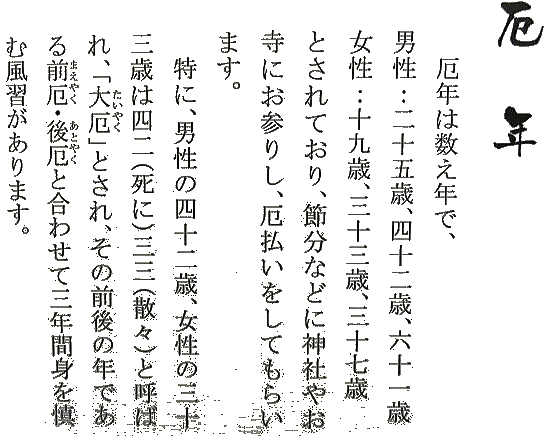 厄年
厄年は数え年で、
男性：二十五歳、四十二歳、六十一歳
女性：十九歳、三十三歳、三十七歳
とされており、節分などに神社やお
寺にお参りし、厄払いをしてもらい
ます。
特に、男性の四十二歳、女性の三十
三歳は四二（死に）三三（散々）と呼ば
れ、「大厄」とされ、その前後の年であ
る前厄・後厄と合わせて三年間身を慎
む風習があります。